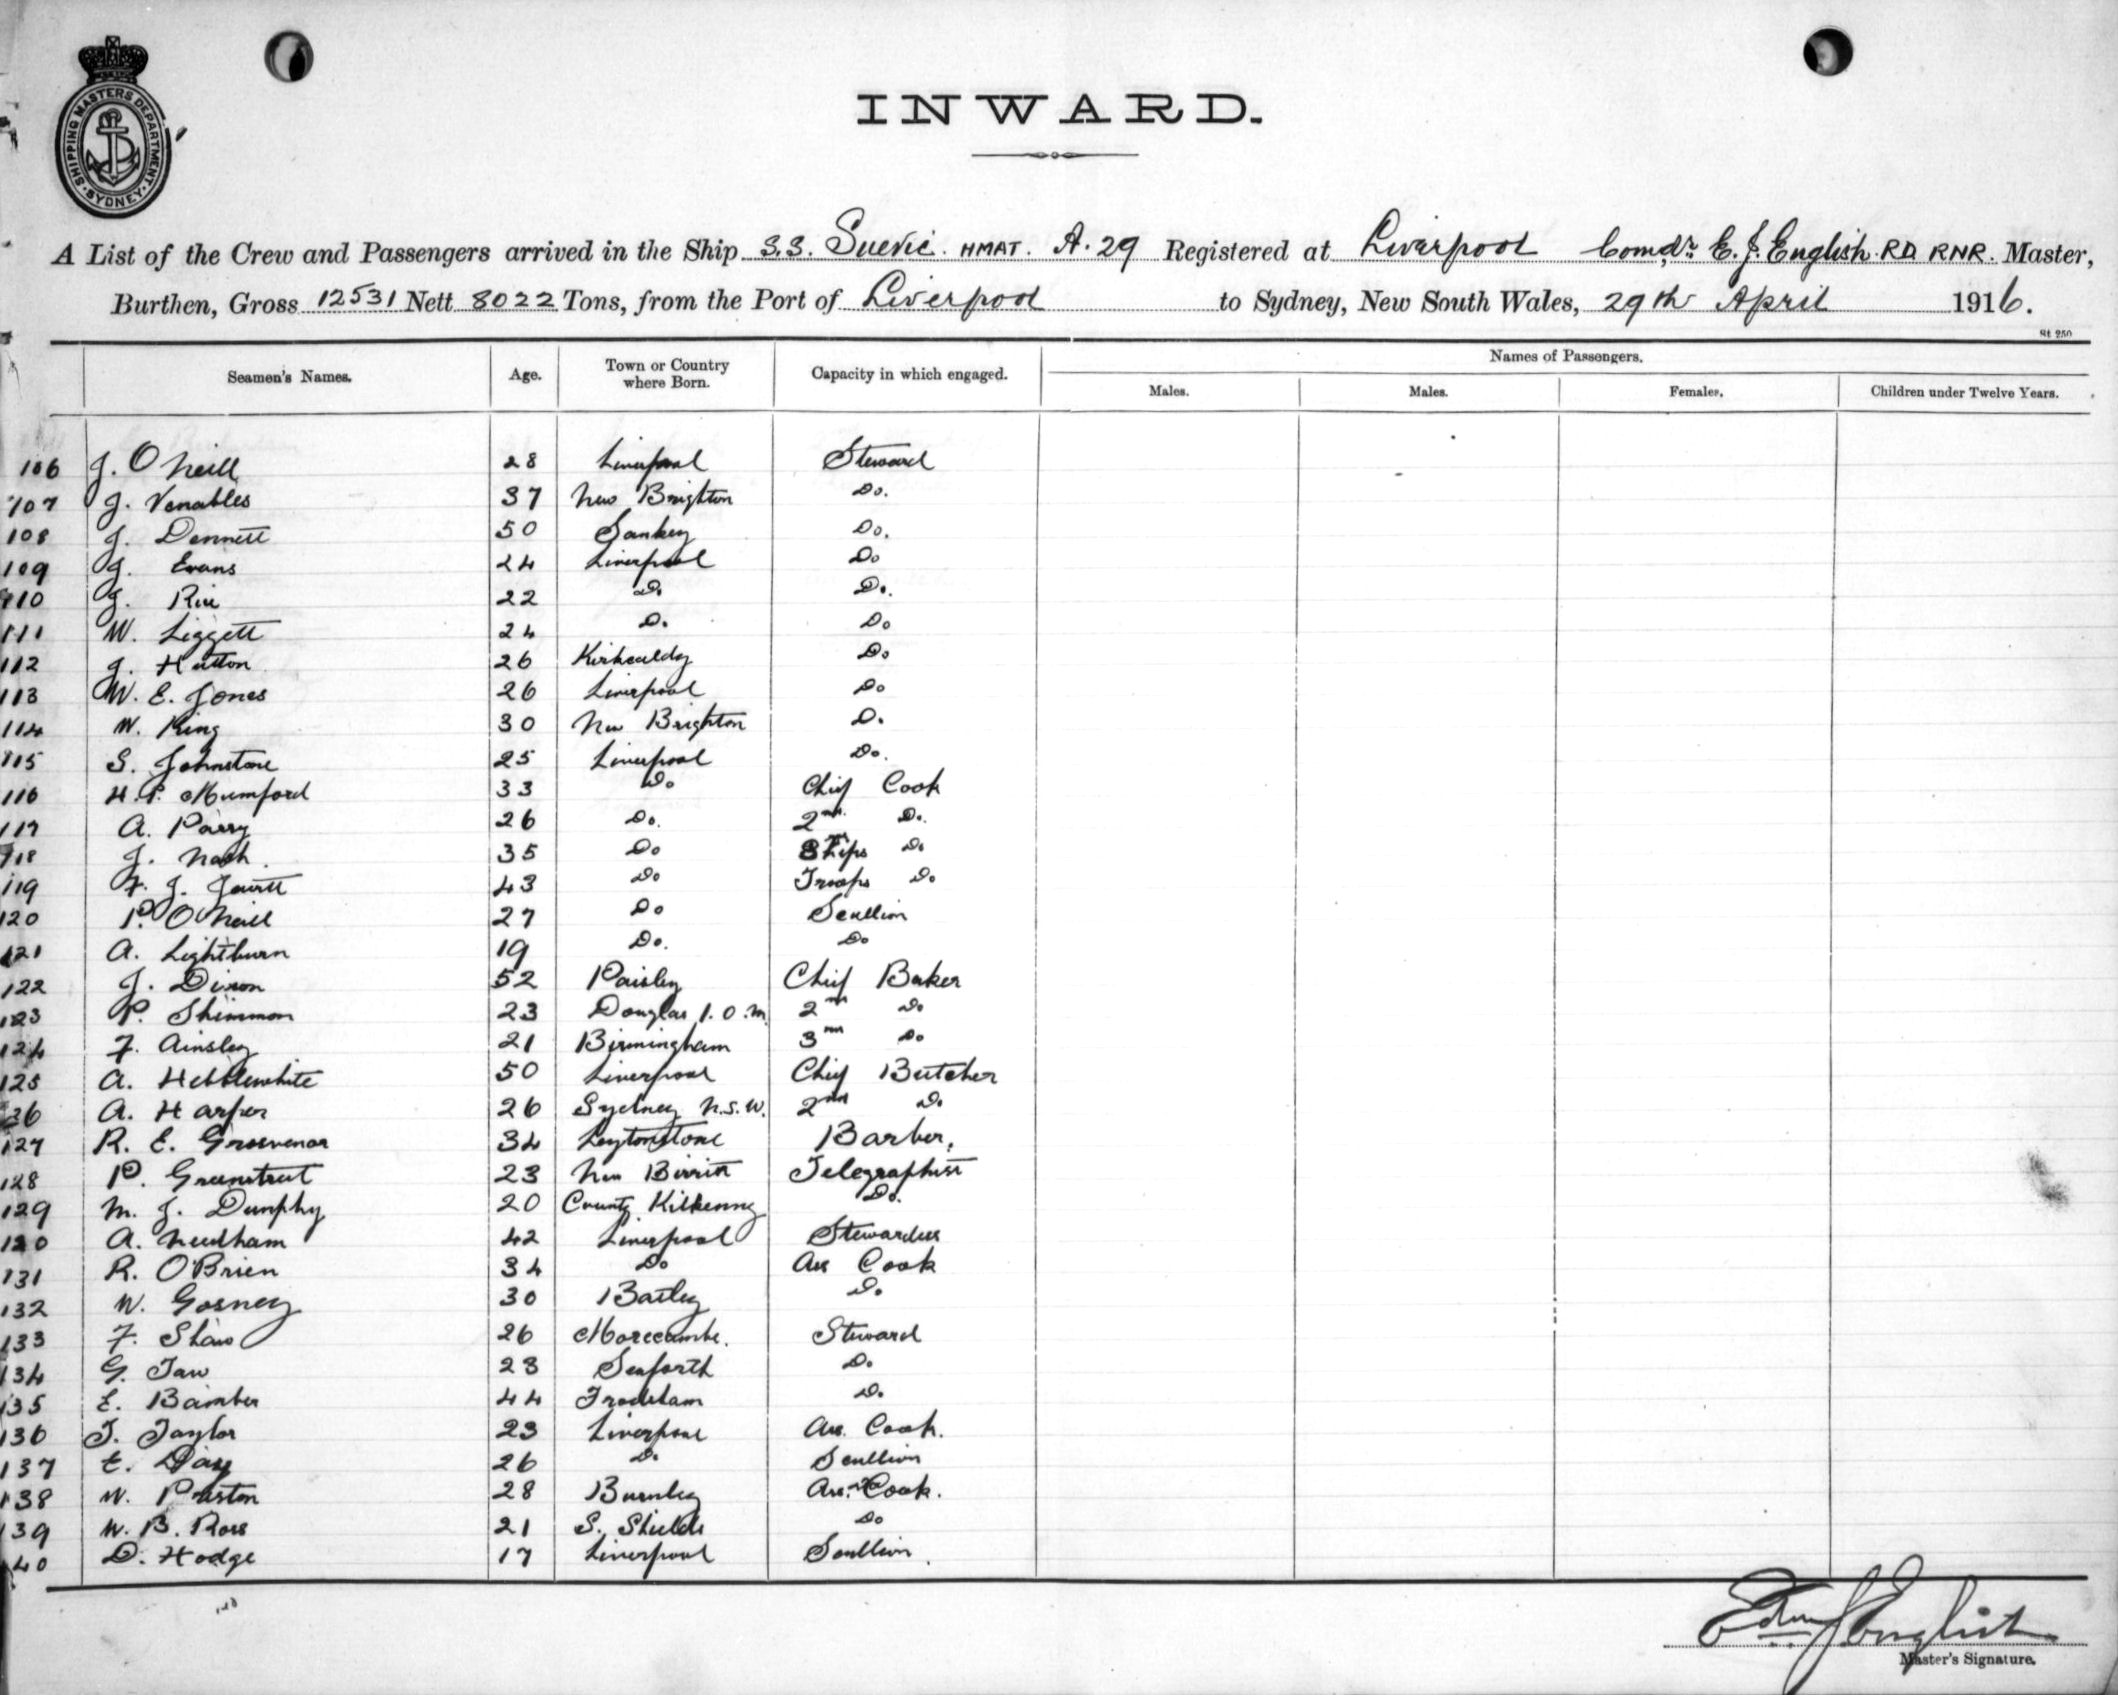 SHIPPING MASTERS DEPARTMENT SYDNEY
INWARD.
A List of the Crew and Passengers arrived in the Ship S.S. Suevic. HMAT. A.29 Registered at Liverpool Comdr. E. J. English. RD. RNR. Master,
Burthen, Gross 12531 Nett 8022 Tons, from the Port of Liverpool to Sydney, New South Wales, 29th April 1916.
St 250
Seamen's Names. Age. Town or Country where Born. Capacity in which engaged. Names of Passengers.
Males. Males. Females. Children under Twelve Years.
106 J. O'Neill 28 Liverpool Steward
107 J. Venables 37 New Brighton Do.
108 J. Dennett 50 Sankey Do.
109 J. Evans 24 Liverpool Do
110 J. 22 Do Do.
111 W. Liggett 24 Do. Do
112 J. Hutton 26 Kirkcaldy Do
113 W. E. Jones 26 Liverpool Do
114 W. King 30 New Brighton Do.
115 S. Johnstone 25 Liverpool Do.
116 H. P. Mumford 33 Do Chief Cook
117 A. Parry 26 Do. 2nd. Do.
118 J. Nash. 35 Do Ships Do
119 F. J. 43 Do Troops Do
120 P. O'Neill 27 Do Scullion
121 A. Lightburn 19 Do. Do
122 J. Dixon 52 Paisley Chief Baker
123 P. Shimmon 23 Douglas I.O.M. 2nd Do
124 F. Ainsley 21 Birmingham 3rd Do
125 A. Hebblewhite 50 Liverpool Chief Butcher
126 A. Harper 26 Sydney N.S.W. 2nd Do
127 R. E. Grosvenor 34 Leytonstone Barber.
128 P. Greenstreet 23 New Telegraphist
129 M. J. Dunphy 20 County Kilkenny Do.
130 A. Needham 42 Liverpool Stewardess
131 R. O'Brien 34 Do Ass Cook
132 W. Gosney 30 Batley Do
133 F. Shaw 26 Morecambe. Steward
134 G. Taw 23 Seaforth Do
135 E. Bamber 44 Frodsham Do.
136 T. Taylor 23 Liverpool Ass. Cook.
137 E. Day 26 Do. Scullion
138 W. Preston 28 Burnley Ass. Cook.
139 W. B. Ross 21 S. Shields Do
140 D. Hodge 17 Liverpool Scullion.
Edw J English
Master's Signature.